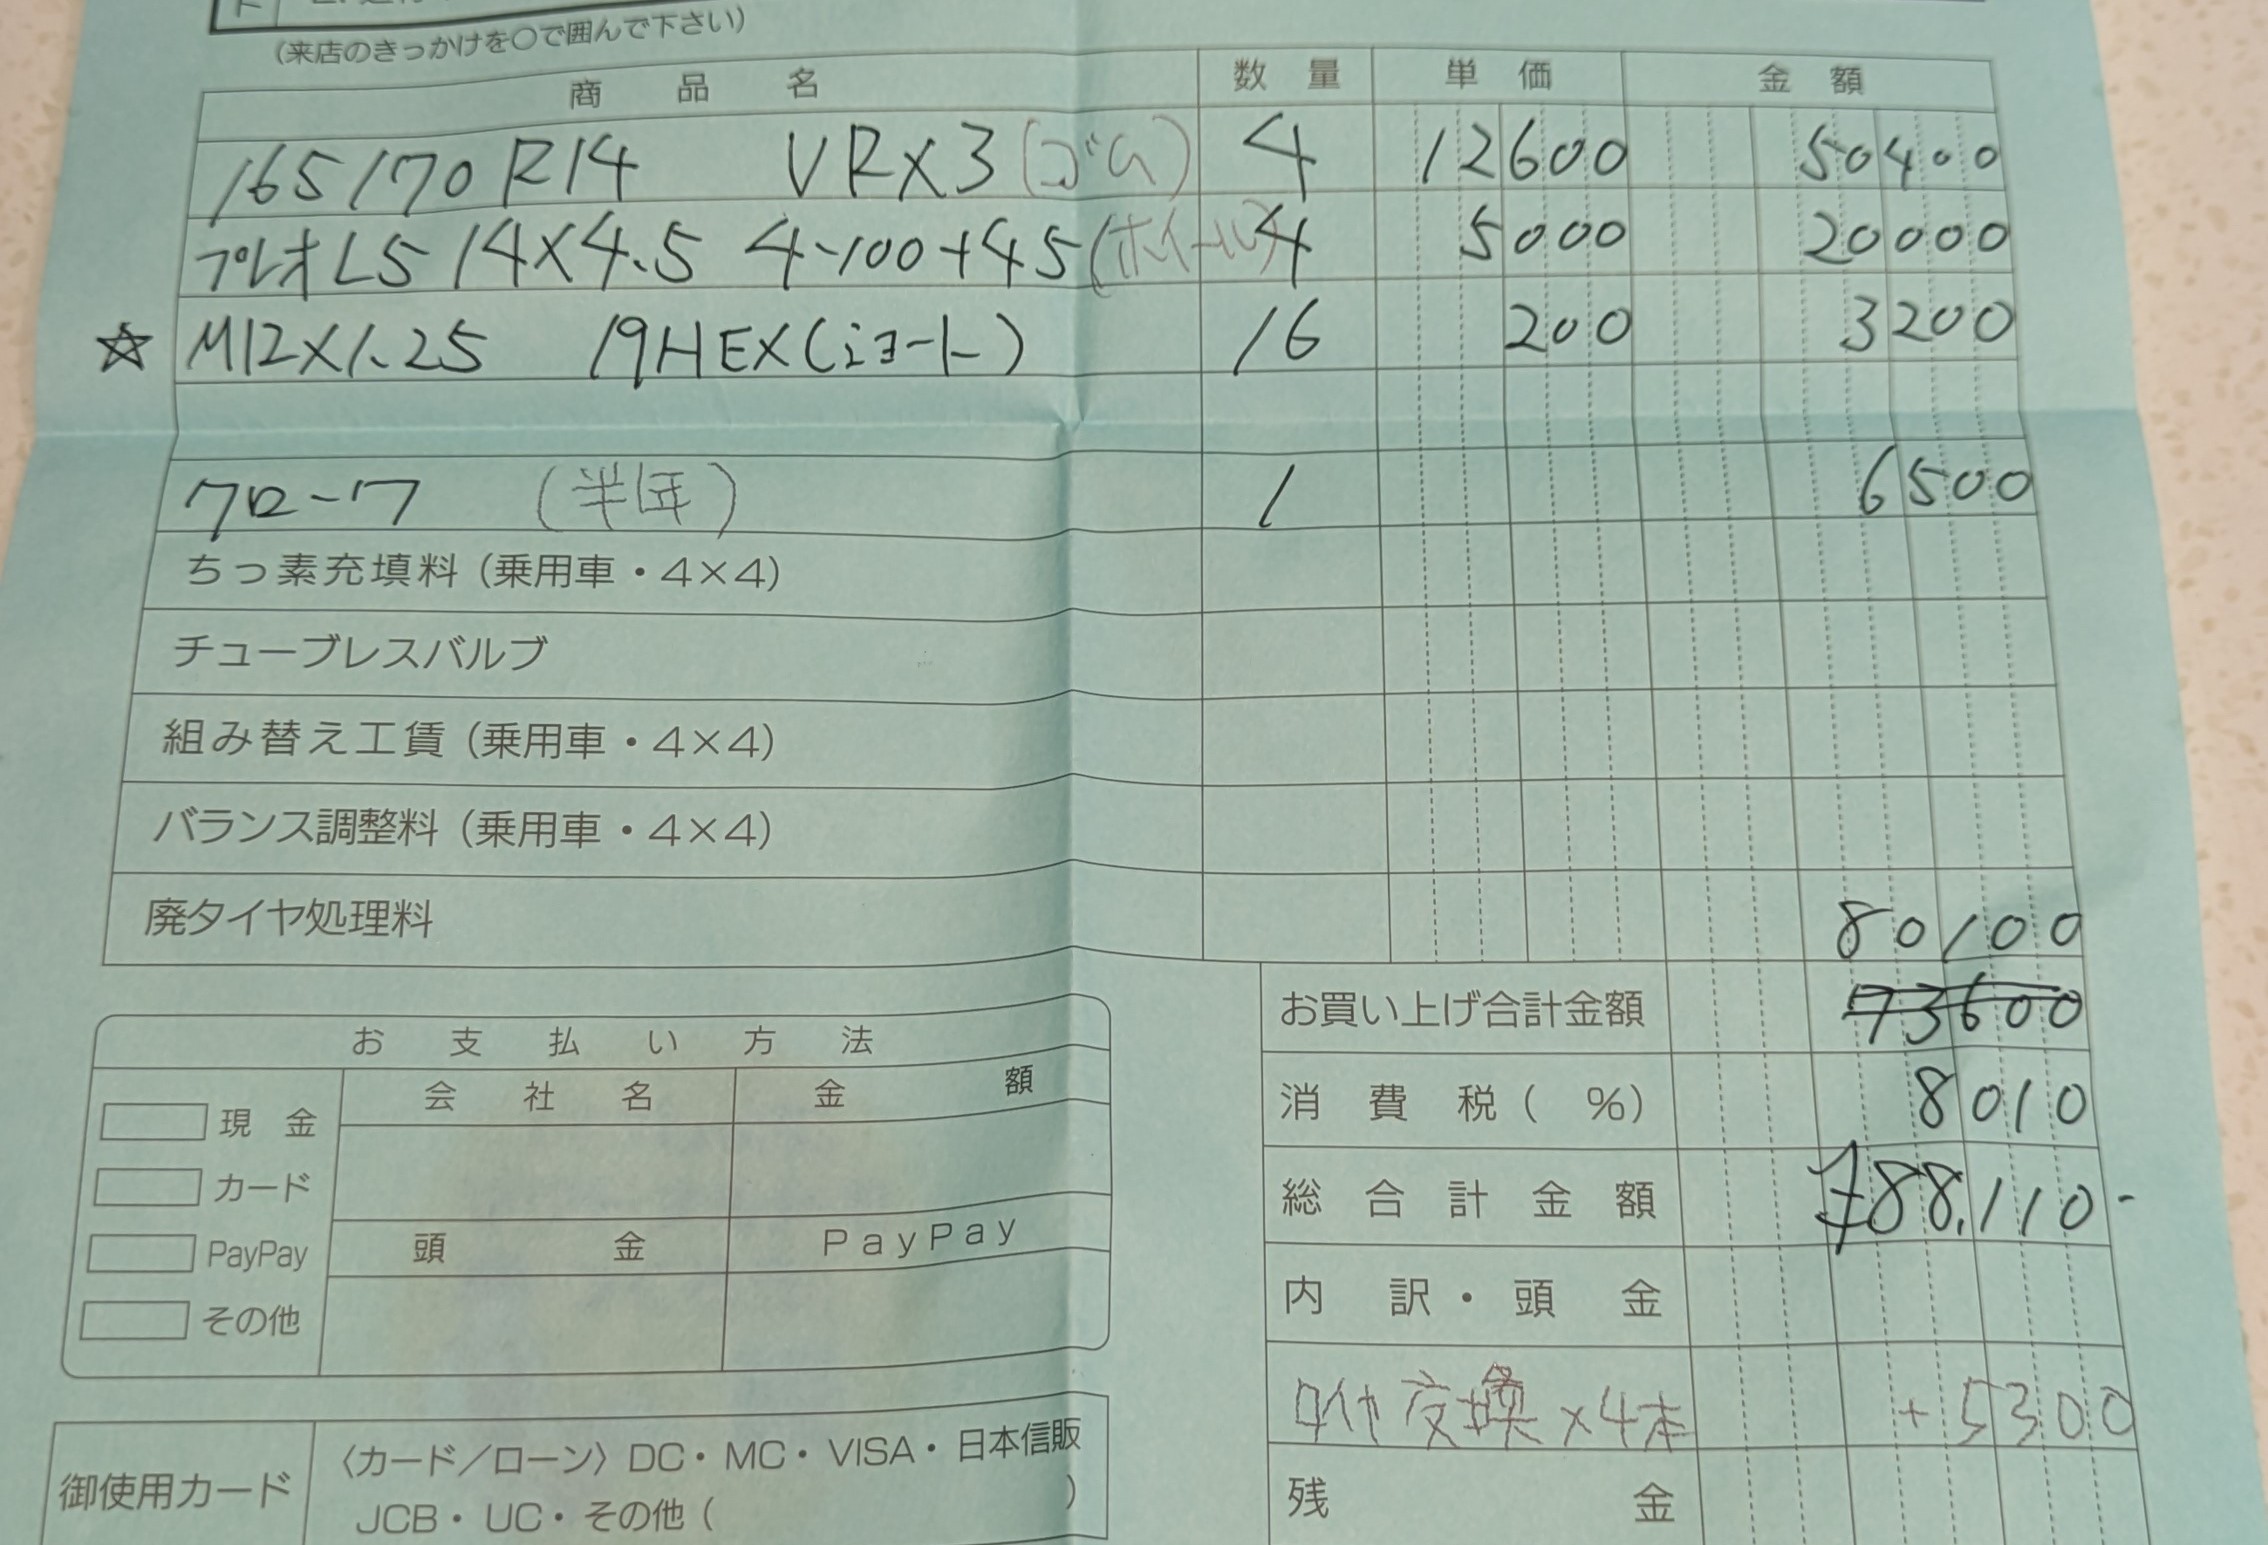 (来店のきっかけを〇で囲んで下さい)
商品名 数量 単価 金額
165/70R14 VRX3 (ゴム) 4 12600 50400
プレオLS 14×4.5 4-100+45 (ホイール) 4 5000 20000
☆ M12×1.25 19HEX(ショート) 16 200 3200
クローク (半年) 1 6500
ちっ素充填料(乗用車・4×4)
チューブレスバルブ
組み替え工賃(乗用車・4×4)
バランス調整料(乗用車・4×4)
廃タイヤ処理料 80100
お買い上げ合計金額 73600
消費税( %) 8010
総合計金額 ¥88,110-
内訳・頭金
タイヤ交換×4本 +5300
残金
お支払い方法
会社名 金額
現金
カード
頭金 PayPay
PayPay
その他
御使用カード
〈カード/ローン〉DC・MC・VISA・日本信販
JCB・UC・その他( )